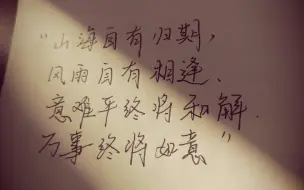 “山海自有归期，
风雨自有相逢、
意难平终将和解.
万事终将如意”